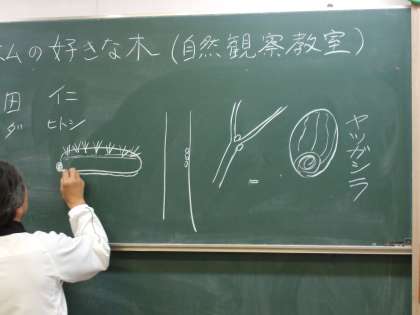 ムの好きな木(自然観察教室)
田 仁
ダ ヒトシ
ヤツガシラ